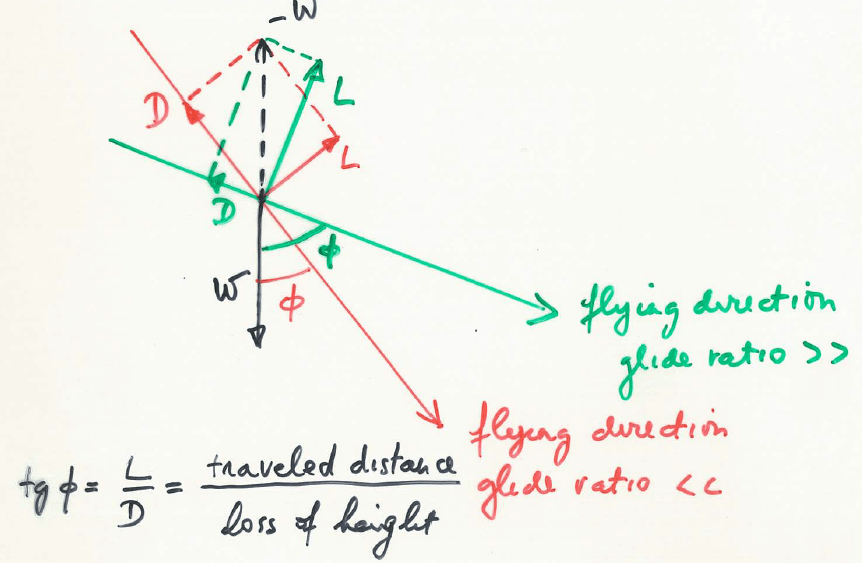 -W
L
D
L
D
ϕ
W
ϕ
flying direction
glide ratio >>
flying direction
glide ratio <<
tg ϕ = L/D = traveled distance
loss of height